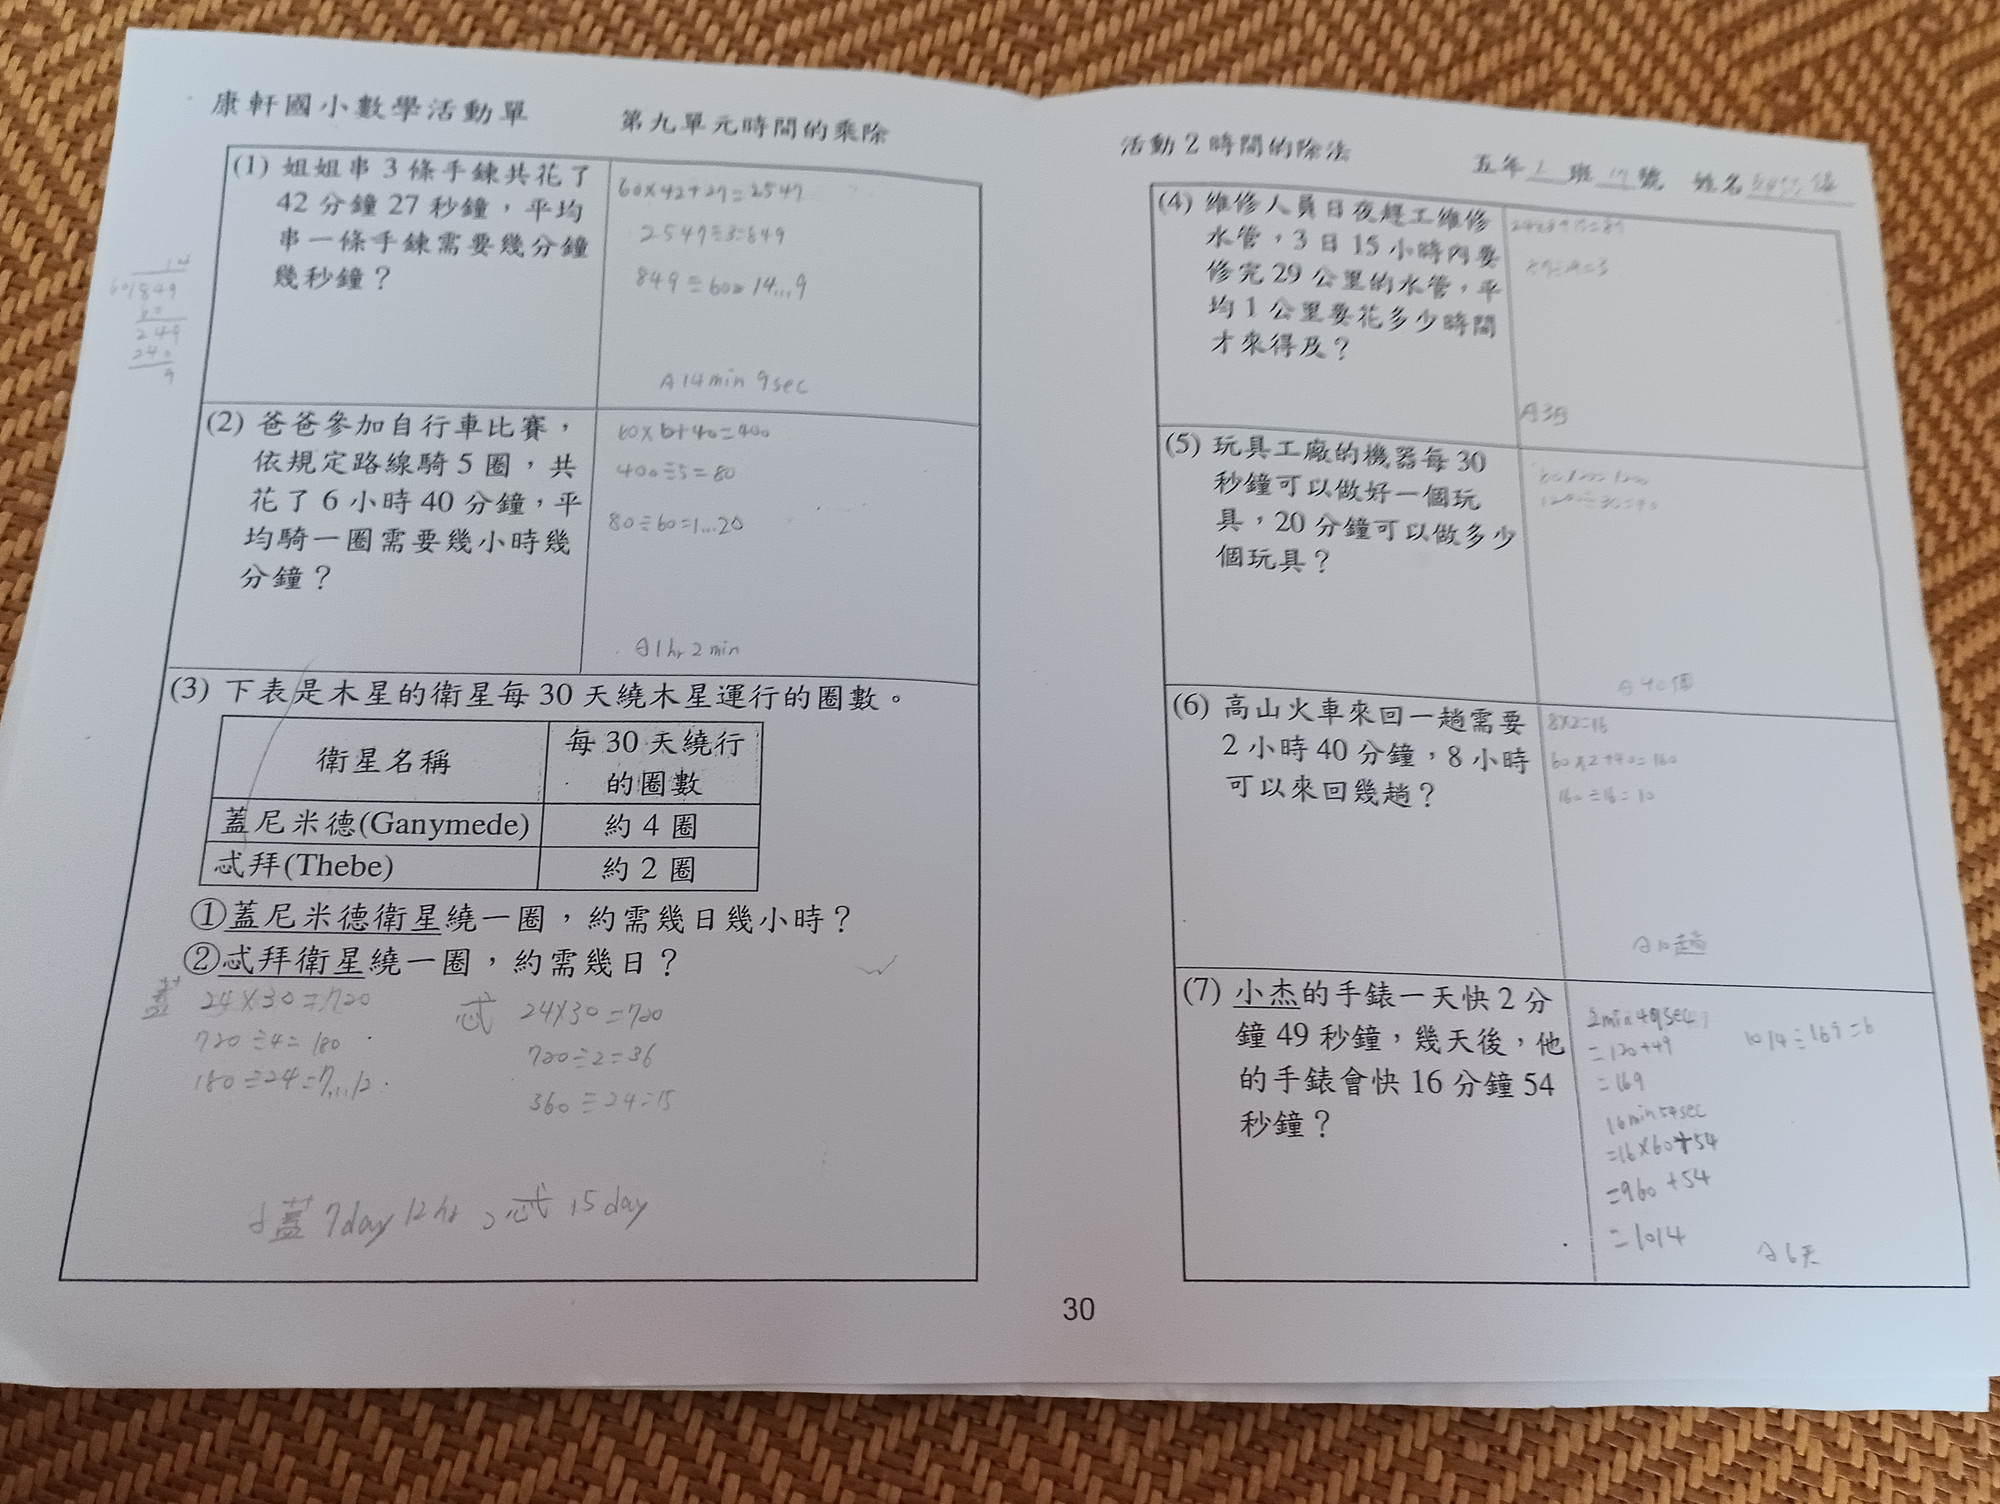 康軒國小數學活動單 第九單元時間的乘除
(1) 姐姐串 3 條手鍊共花了
42 分鐘 27 秒鐘，平均
串一條手鍊需要幾分鐘
幾秒鐘？
60×42+27=2547
2547÷3=849
849÷60=14...9
A 14 min 9 sec
14
60)849
60
249
240
9
(2) 爸爸參加自行車比賽，
依規定路線騎 5 圈，共
花了 6 小時 40 分鐘，平
均騎一圈需要幾小時幾
分鐘？
60×6+40=400
400÷5=80
80÷60=1...20
A 1 hr 2 min
(3) 下表是木星的衛星每 30 天繞木星運行的圈數。
衛星名稱 每 30 天繞行
的圈數
蓋尼米德(Ganymede) 約 4 圈
忒拜(Thebe) 約 2 圈
①蓋尼米德衛星繞一圈，約需幾日幾小時？
②忒拜衛星繞一圈，約需幾日？
蓋 24×30=720
720÷4=180
180÷24=7...12
忒 24×30=720
720÷2=36
360÷24=15
蓋 7day 12hr, 忒 15 day
活動 2 時間的除法 五年 班 17 號 姓名
(4) 維修人員日夜趕工維修
水管，3 日 15 小時內要
修完 29 公里的水管，平
均 1 公里要花多少時間
才來得及？
(5) 玩具工廠的機器每 30
秒鐘可以做好一個玩
具，20 分鐘可以做多少
個玩具？
A 40個
(6) 高山火車來回一趟需要
2 小時 40 分鐘，8 小時
可以來回幾趟？
8×2=16
60×2+40=160
160÷16=10
A 10 趟
(7) 小杰的手錶一天快 2 分
鐘 49 秒鐘，幾天後，他
的手錶會快 16 分鐘 54
秒鐘？
2min 49sec
=120+49
=169
16min 54sec
=16×60+54
=960+54
=1014
1014÷169=6
A 6天
30